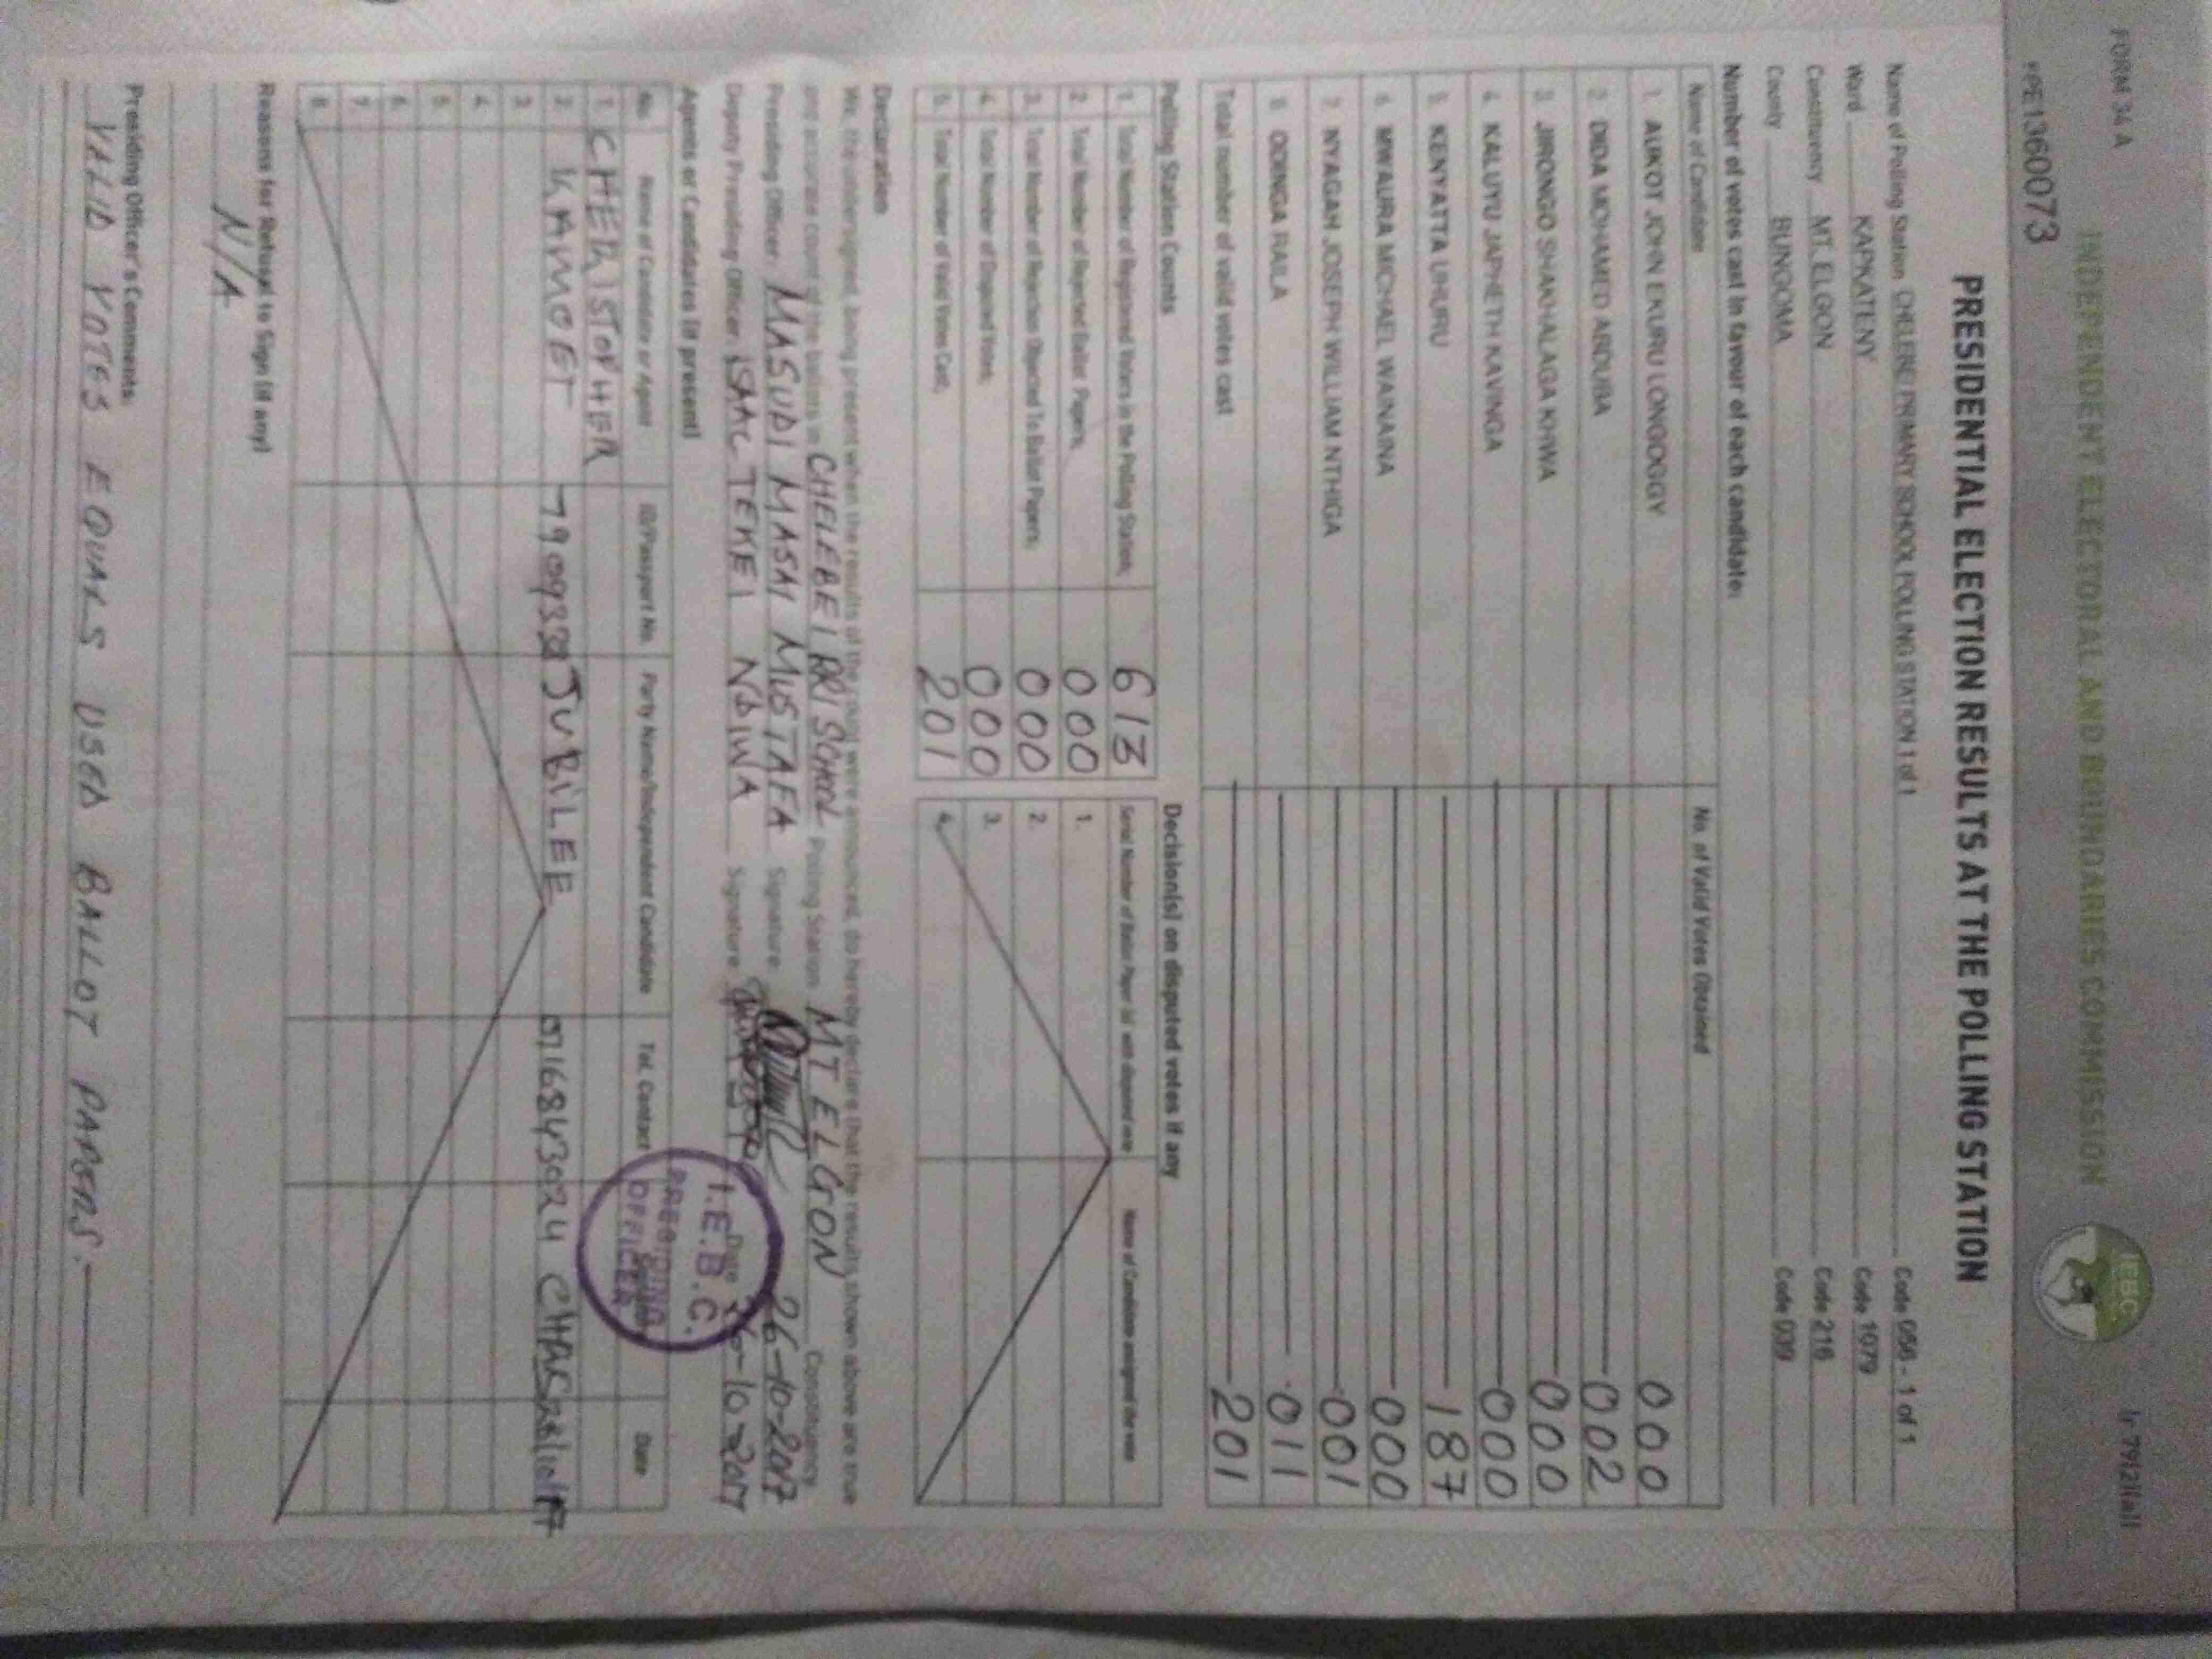 FORM 34 A
INDEPENDENT ELECTORAL AND BOUNDARIES COMMISSION
IEBC
PE1360073
PRESIDENTIAL ELECTION RESULTS AT THE POLLING STATION
Name of Polling Station CHELEBEI PRIMARY SCHOOL POLLING STATION 1 of 1 Code 056 - 1 of 1
Ward KAPKATENY Code 1079
Constituency MT. ELGON Code 216
County BUNGOMA Code 039
Number of votes cast in favour of each candidate:
Name of Candidate No. of Valid Votes Obtained
1. AUKOT JOHN EKURU LONGOGGY 000
2. DIDA MOHAMED ABDUBA 002
3. JIRONGO SHAKHALAGA KHWA 000
4. KALUYU JAPHETH KAVINGA 000
5. KENYATTA UHURU 187
6. MWAURA MICHAEL WAINAINA 000
7. NYAGAH JOSEPH WILLIAM NTHIGA 001
8. ODINGA RAILA 011
Total number of valid votes cast 201
Polling Station Counts Decision(s) on disputed votes if any
1. Total Number of Registered Voters in the Polling Station; 613
2. Total Number of Rejected Ballot Papers; 000
3. Total Number of Rejection Objected To Ballot Papers; 000
4. Total Number of Disputed Votes; 000
5. Total Number of Valid Votes Cast; 201
Serial Number of Ballot Paper (s) with disputed vote Name of Candidate assigned the vote
1.
2.
3.
4.
Declaration
We, the undersigned, being present when the results of the count were announced, do hereby declare that the results shown above are true
and accurate count of the ballots in CHELEBEI PRI SCHOOL Polling Station MT ELGON Constituency
Presiding Officer MASUDI MASAI MUSTAFA Signature 26-10-2017
Deputy Presiding Officer ISAAC TEKEI NDIWA Signature Date 26-10-2017
I.E.B.C.
PRESIDING
OFFICER
Agents or Candidates (if present)
No. Name of Candidate or Agent ID/Passport No. Party Name/Independent Candidate Tel. Contact Date
1. CHERISTOPHER
2. KAMOET JUBILEE 0716843024
3.
4.
5.
6.
7.
8.
Reasons for Refusal to Sign (if any)
N/A
Presiding Officer's Comments:
VALID VOTES EQUALS USED BALLOT PAPERS.